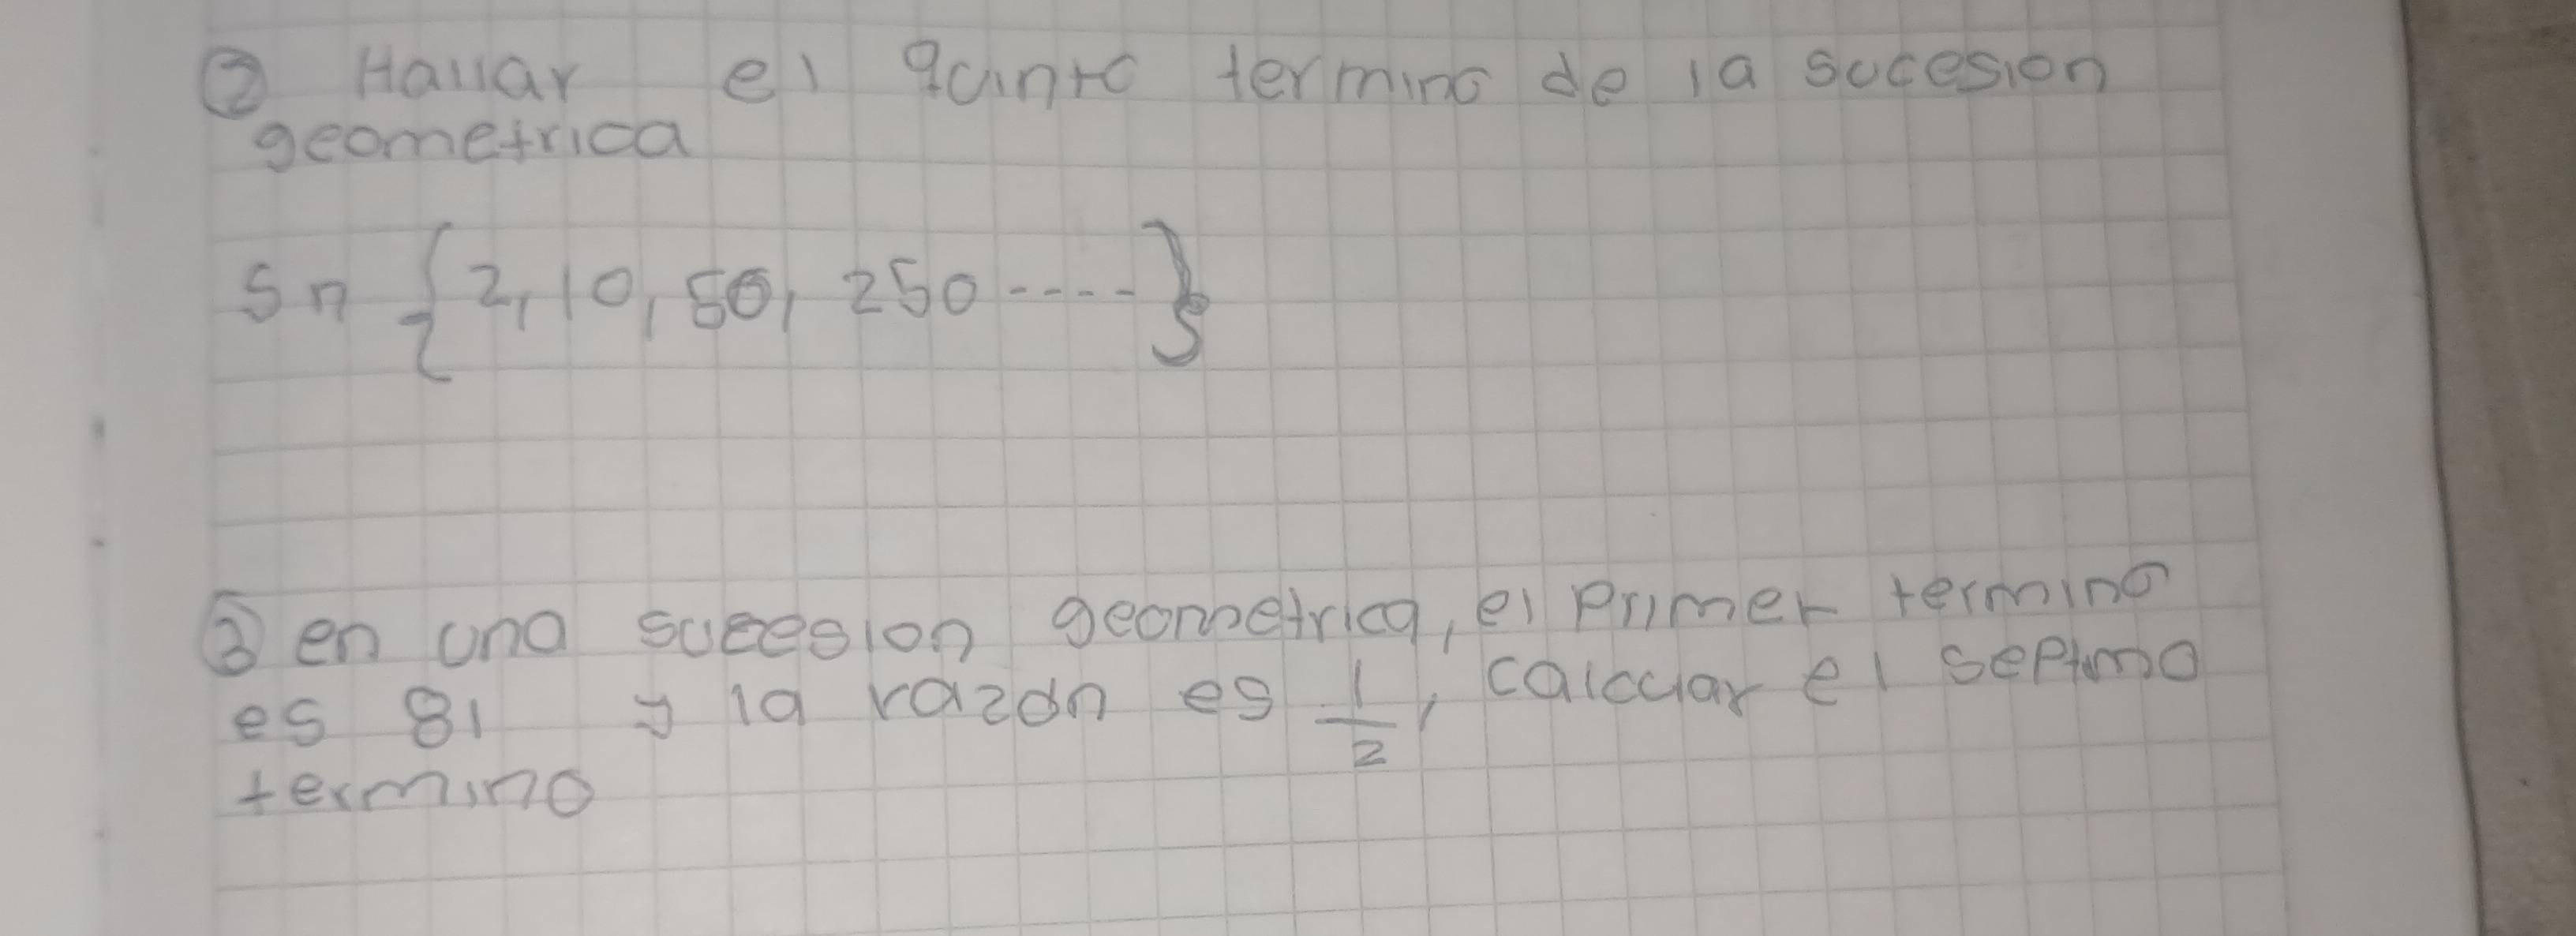 ② Hallar el quinto termino de la sucesion
geometrica
Sn {2, 10, 50, 250 ----}
③ en una sucesion geometrica, el primer termino
es 81 y la razón es 1/2, calcular el septimo
termino